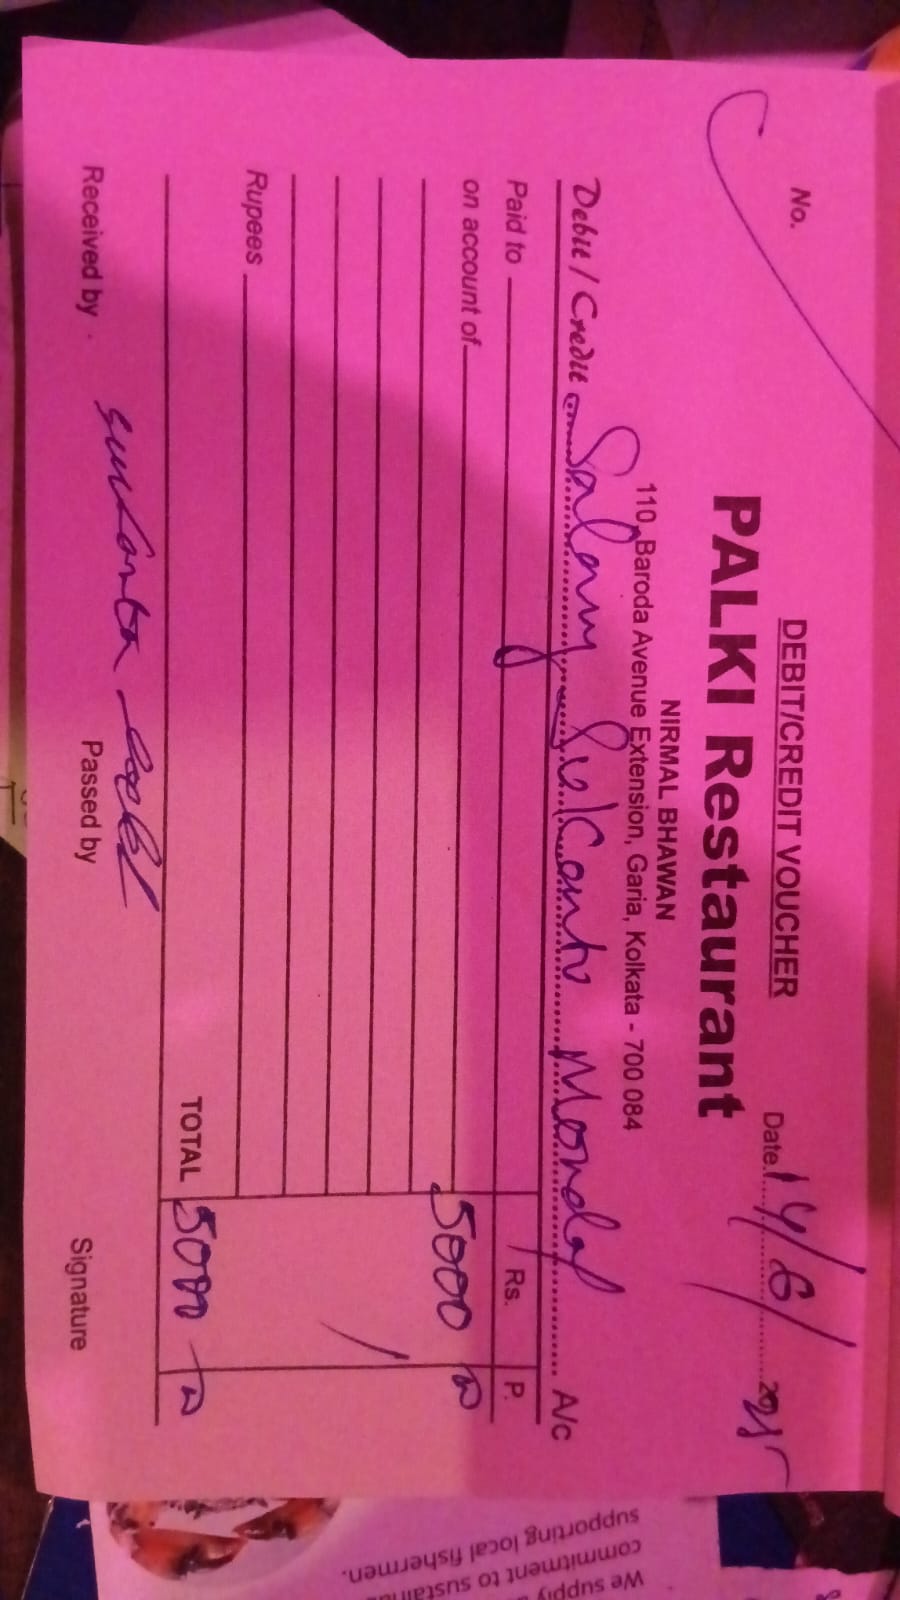 DEBIT/CREDIT VOUCHER
No.
Date 14/6/2025
PALKI Restaurant
NIRMAL BHAWAN
110, Baroda Avenue Extension, Garia, Kolkata - 700 084
Debit / Credit Salary Su Kanta Mondal A/c
Paid to Rs. P.
on account of 5000
Rupees
TOTAL 5000
Received by Passed by Signature
We supply
commitment to
supporting local fishermen.